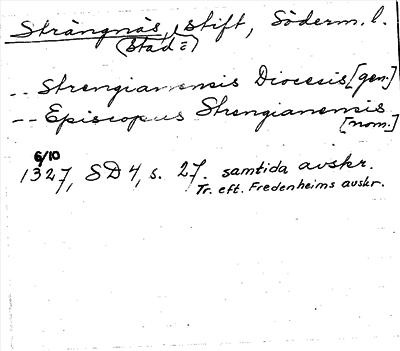 Strängnäs, stift, Söderm. l.
(Stad =)
-- Strengianensis Diocesis [gen.]
-- Episcopus Strengianensis
[nom.]
6/10
1327, SD 4, s. 27. samtida avskr.
Tr. eft. Fredenheims avskr.